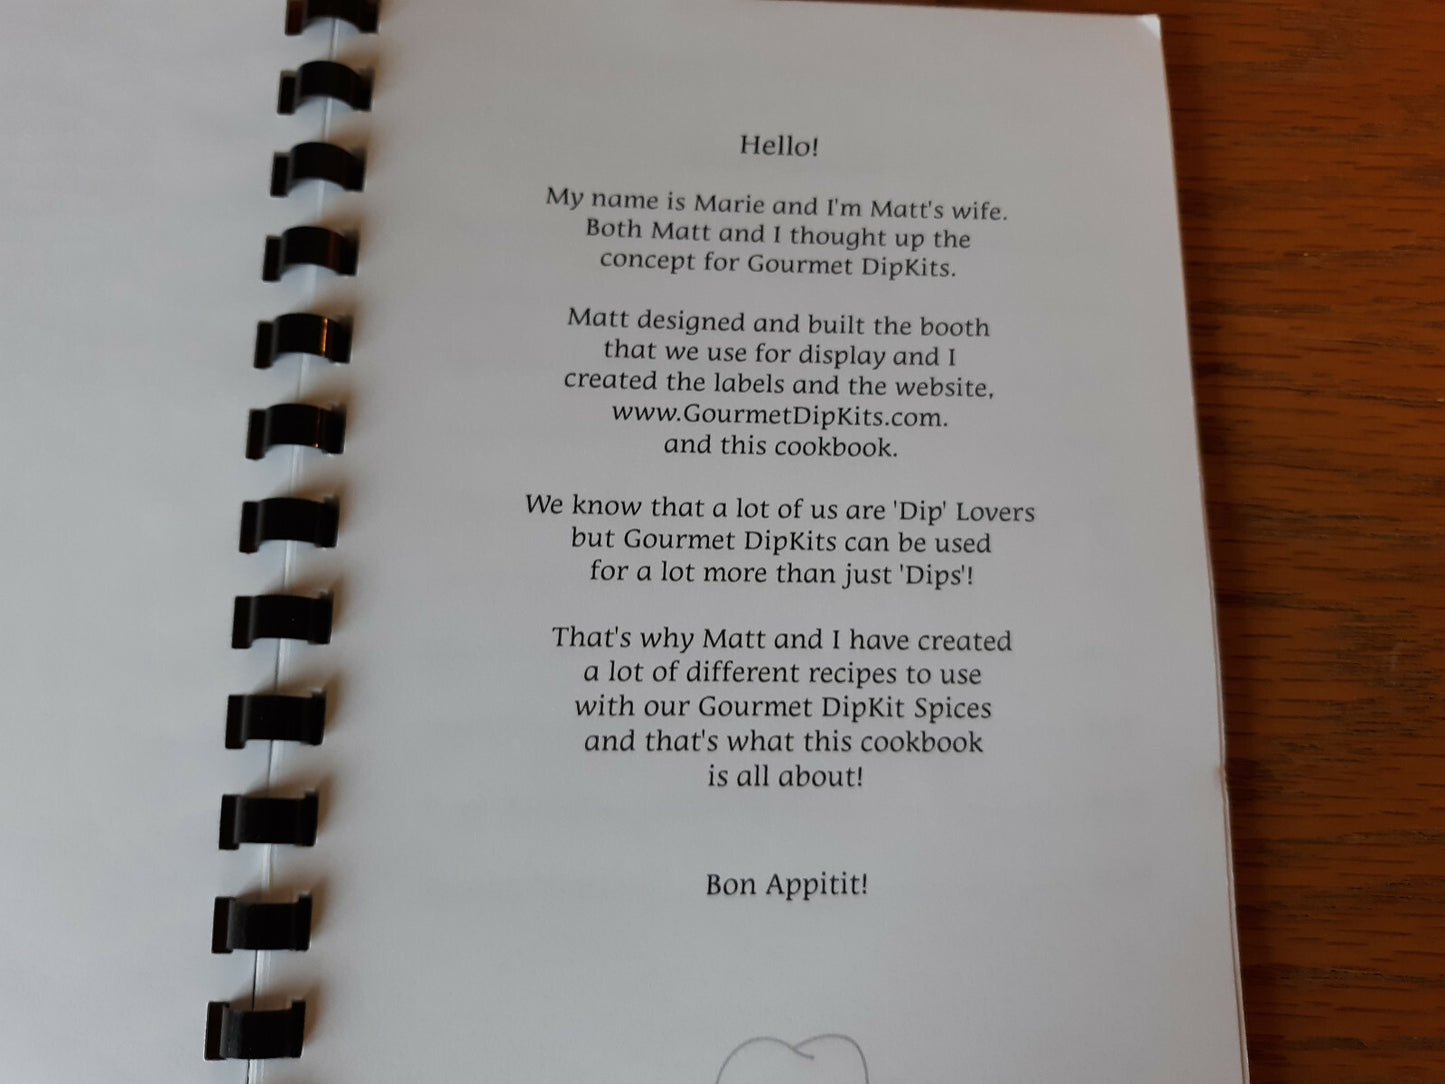 Hello!
My name is Marie and I'm Matt's wife.
Both Matt and I thought up the
concept for Gourmet DipKits.
Matt designed and built the booth
that we use for display and I
created the labels and the website,
www.GourmetDipKits.com.
and this cookbook.
We know that a lot of us are 'Dip' Lovers
but Gourmet DipKits can be used
for a lot more than just 'Dips'!
That's why Matt and I have created
a lot of different recipes to use
with our Gourmet DipKit Spices
and that's what this cookbook
is all about!
Bon Appitit!